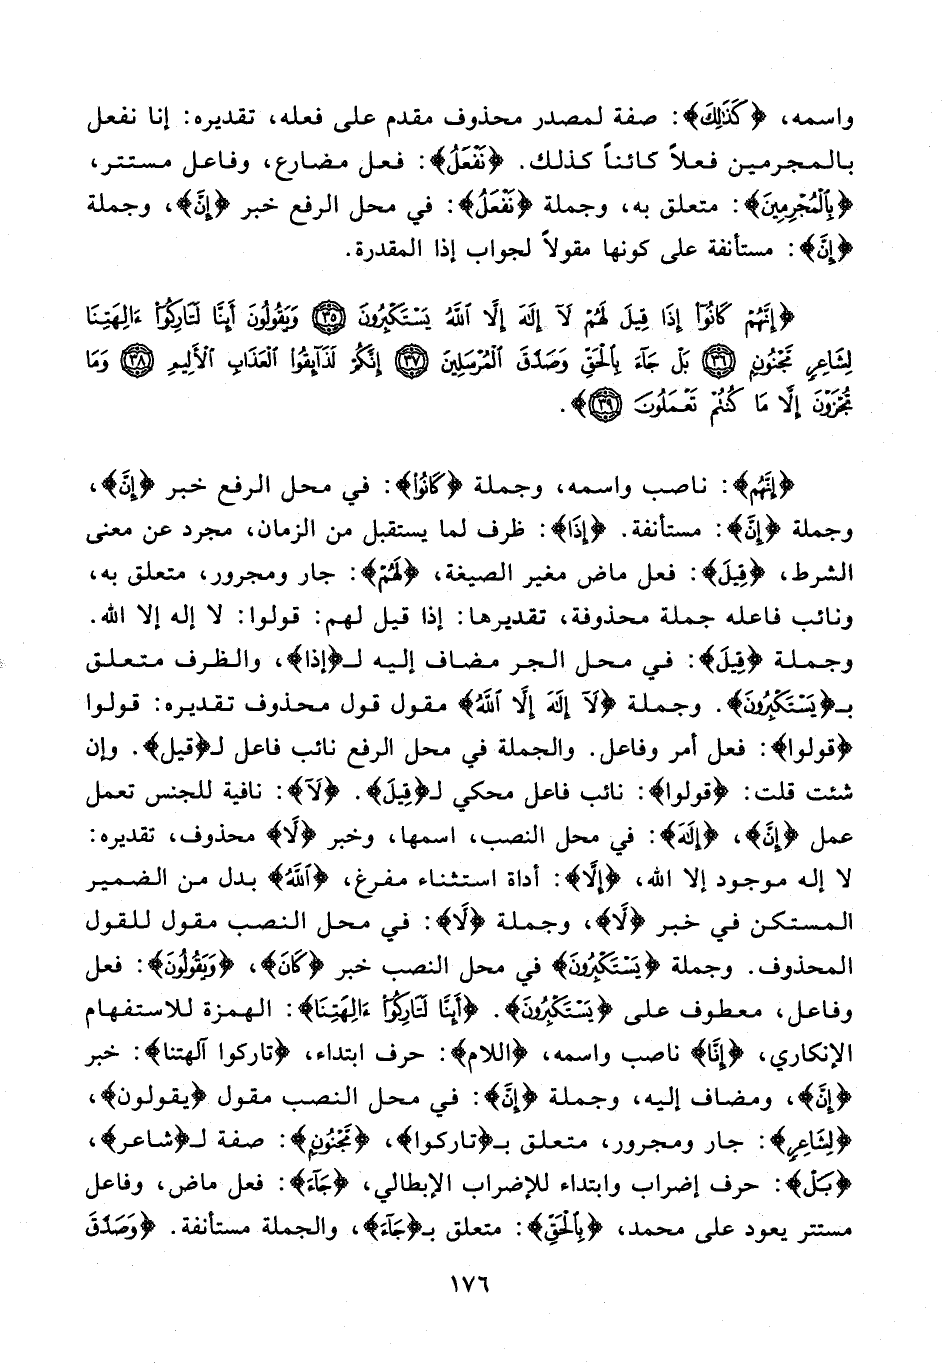 واسمه، ﴿كَذَٰلِكَ﴾: صفة لمصدر محذوف مقدم على فعله، تقديره: إنا نفعل
بالمجرمين فعلاً كائناً كذلك. ﴿نَفْعَلُ﴾: فعل مضارع، وفاعل مستتر،
﴿بِٱلْمُجْرِمِينَ﴾: متعلق به، وجملة ﴿نَفْعَلُ﴾: في محل الرفع خبر ﴿إِنَّ﴾، وجملة
﴿إِنَّ﴾: مستأنفة على كونها مقولاً لجواب إذا المقدرة.
﴿إِنَّهُمْ كَانُوٓا۟ إِذَا قِيلَ لَهُمْ لَآ إِلَٰهَ إِلَّا ٱللَّهُ يَسْتَكْبِرُونَ ﴿٣٥﴾ وَيَقُولُونَ أَئِنَّا لَتَارِكُوٓا۟ ءَالِهَتِنَا
لِشَاعِرٍ مَّجْنُونٍۭ ﴿٣٦﴾ بَلْ جَآءَ بِٱلْحَقِّ وَصَدَّقَ ٱلْمُرْسَلِينَ ﴿٣٧﴾ إِنَّكُمْ لَذَآئِقُوا۟ ٱلْعَذَابِ ٱلْأَلِيمِ ﴿٣٨﴾ وَمَا
تُجْزَوْنَ إِلَّا مَا كُنتُمْ تَعْمَلُونَ ﴿٣٩﴾﴾.
﴿إِنَّهُمْ﴾: ناصب واسمه، وجملة ﴿كَانُوٓا۟﴾: في محل الرفع خبر ﴿إِنَّ﴾،
وجملة ﴿إِنَّ﴾: مستأنفة. ﴿إِذَا﴾: ظرف لما يستقبل من الزمان، مجرد عن معنى
الشرط، ﴿قِيلَ﴾: فعل ماض مغير الصيغة، ﴿لَهُمْ﴾: جار ومجرور، متعلق به،
ونائب فاعله جملة محذوفة، تقديرها: إذا قيل لهم: قولوا: لا إله إلا الله.
وجملة ﴿قِيلَ﴾: في محل الجر مضاف إليه لـ﴿إذا﴾، والظرف متعلق
بـ﴿يَسْتَكْبِرُونَ﴾. وجملة ﴿لَآ إِلَٰهَ إِلَّا ٱللَّهُ﴾ مقول قول محذوف تقديره: قولوا
﴿قولوا﴾: فعل أمر وفاعل. والجملة في محل الرفع نائب فاعل لـ﴿قيل﴾. وإن
شئت قلت: ﴿قولوا﴾: نائب فاعل محكي لـ﴿قِيلَ﴾. ﴿لَآ﴾: نافية للجنس تعمل
عمل ﴿إِنَّ﴾، ﴿إِلَٰهَ﴾: في محل النصب، اسمها، وخبر ﴿لَا﴾ محذوف، تقديره:
لا إله موجود إلا الله، ﴿إِلَّا﴾: أداة استثناء مفرغ، ﴿ٱللَّهُ﴾ بدل من الضمير
المستكن في خبر ﴿لَا﴾، وجملة ﴿لَا﴾: في محل النصب مقول للقول
المحذوف. وجملة ﴿يَسْتَكْبِرُونَ﴾ في محل النصب خبر ﴿كَانَ﴾، ﴿وَيَقُولُونَ﴾: فعل
وفاعل، معطوف على ﴿يَسْتَكْبِرُونَ﴾. ﴿أَئِنَّا لَتَارِكُوٓا۟ ءَالِهَتِنَا﴾: الهمزة للاستفهام
الإنكاري، ﴿إِنَّا﴾ ناصب واسمه، ﴿اللام﴾: حرف ابتداء، ﴿تاركوا آلهتنا﴾: خبر
﴿إِنَّ﴾، ومضاف إليه، وجملة ﴿إِنَّ﴾: في محل النصب مقول ﴿يقولون﴾،
﴿لِشَاعِرٍ﴾: جار ومجرور، متعلق بـ﴿تاركوا﴾، ﴿مَّجْنُونٍ﴾: صفة لـ﴿شاعر﴾،
﴿بَلْ﴾: حرف إضراب وابتداء للإضراب الإبطالي، ﴿جَآءَ﴾: فعل ماض، وفاعل
مستتر يعود على محمد، ﴿بِٱلْحَقِّ﴾: متعلق بـ﴿جَآءَ﴾، والجملة مستأنفة. ﴿وَصَدَّقَ
١٧٦